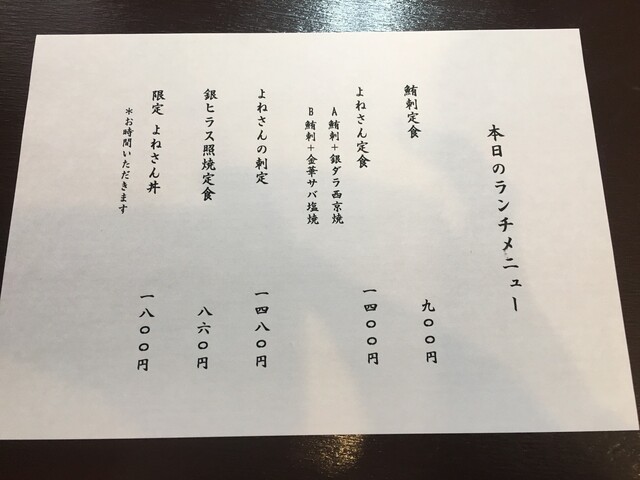 本日のランチメニュー
鮪刺定食 九〇〇円
よねさん定食 一四〇〇円
A 鮪刺＋銀ダラ西京焼
B 鮪刺＋金華サバ塩焼
よねさんの刺定 一四八〇円
銀ヒラス照焼定食 八六〇円
限定 よねさん丼 一八〇〇円
＊お時間いただきます